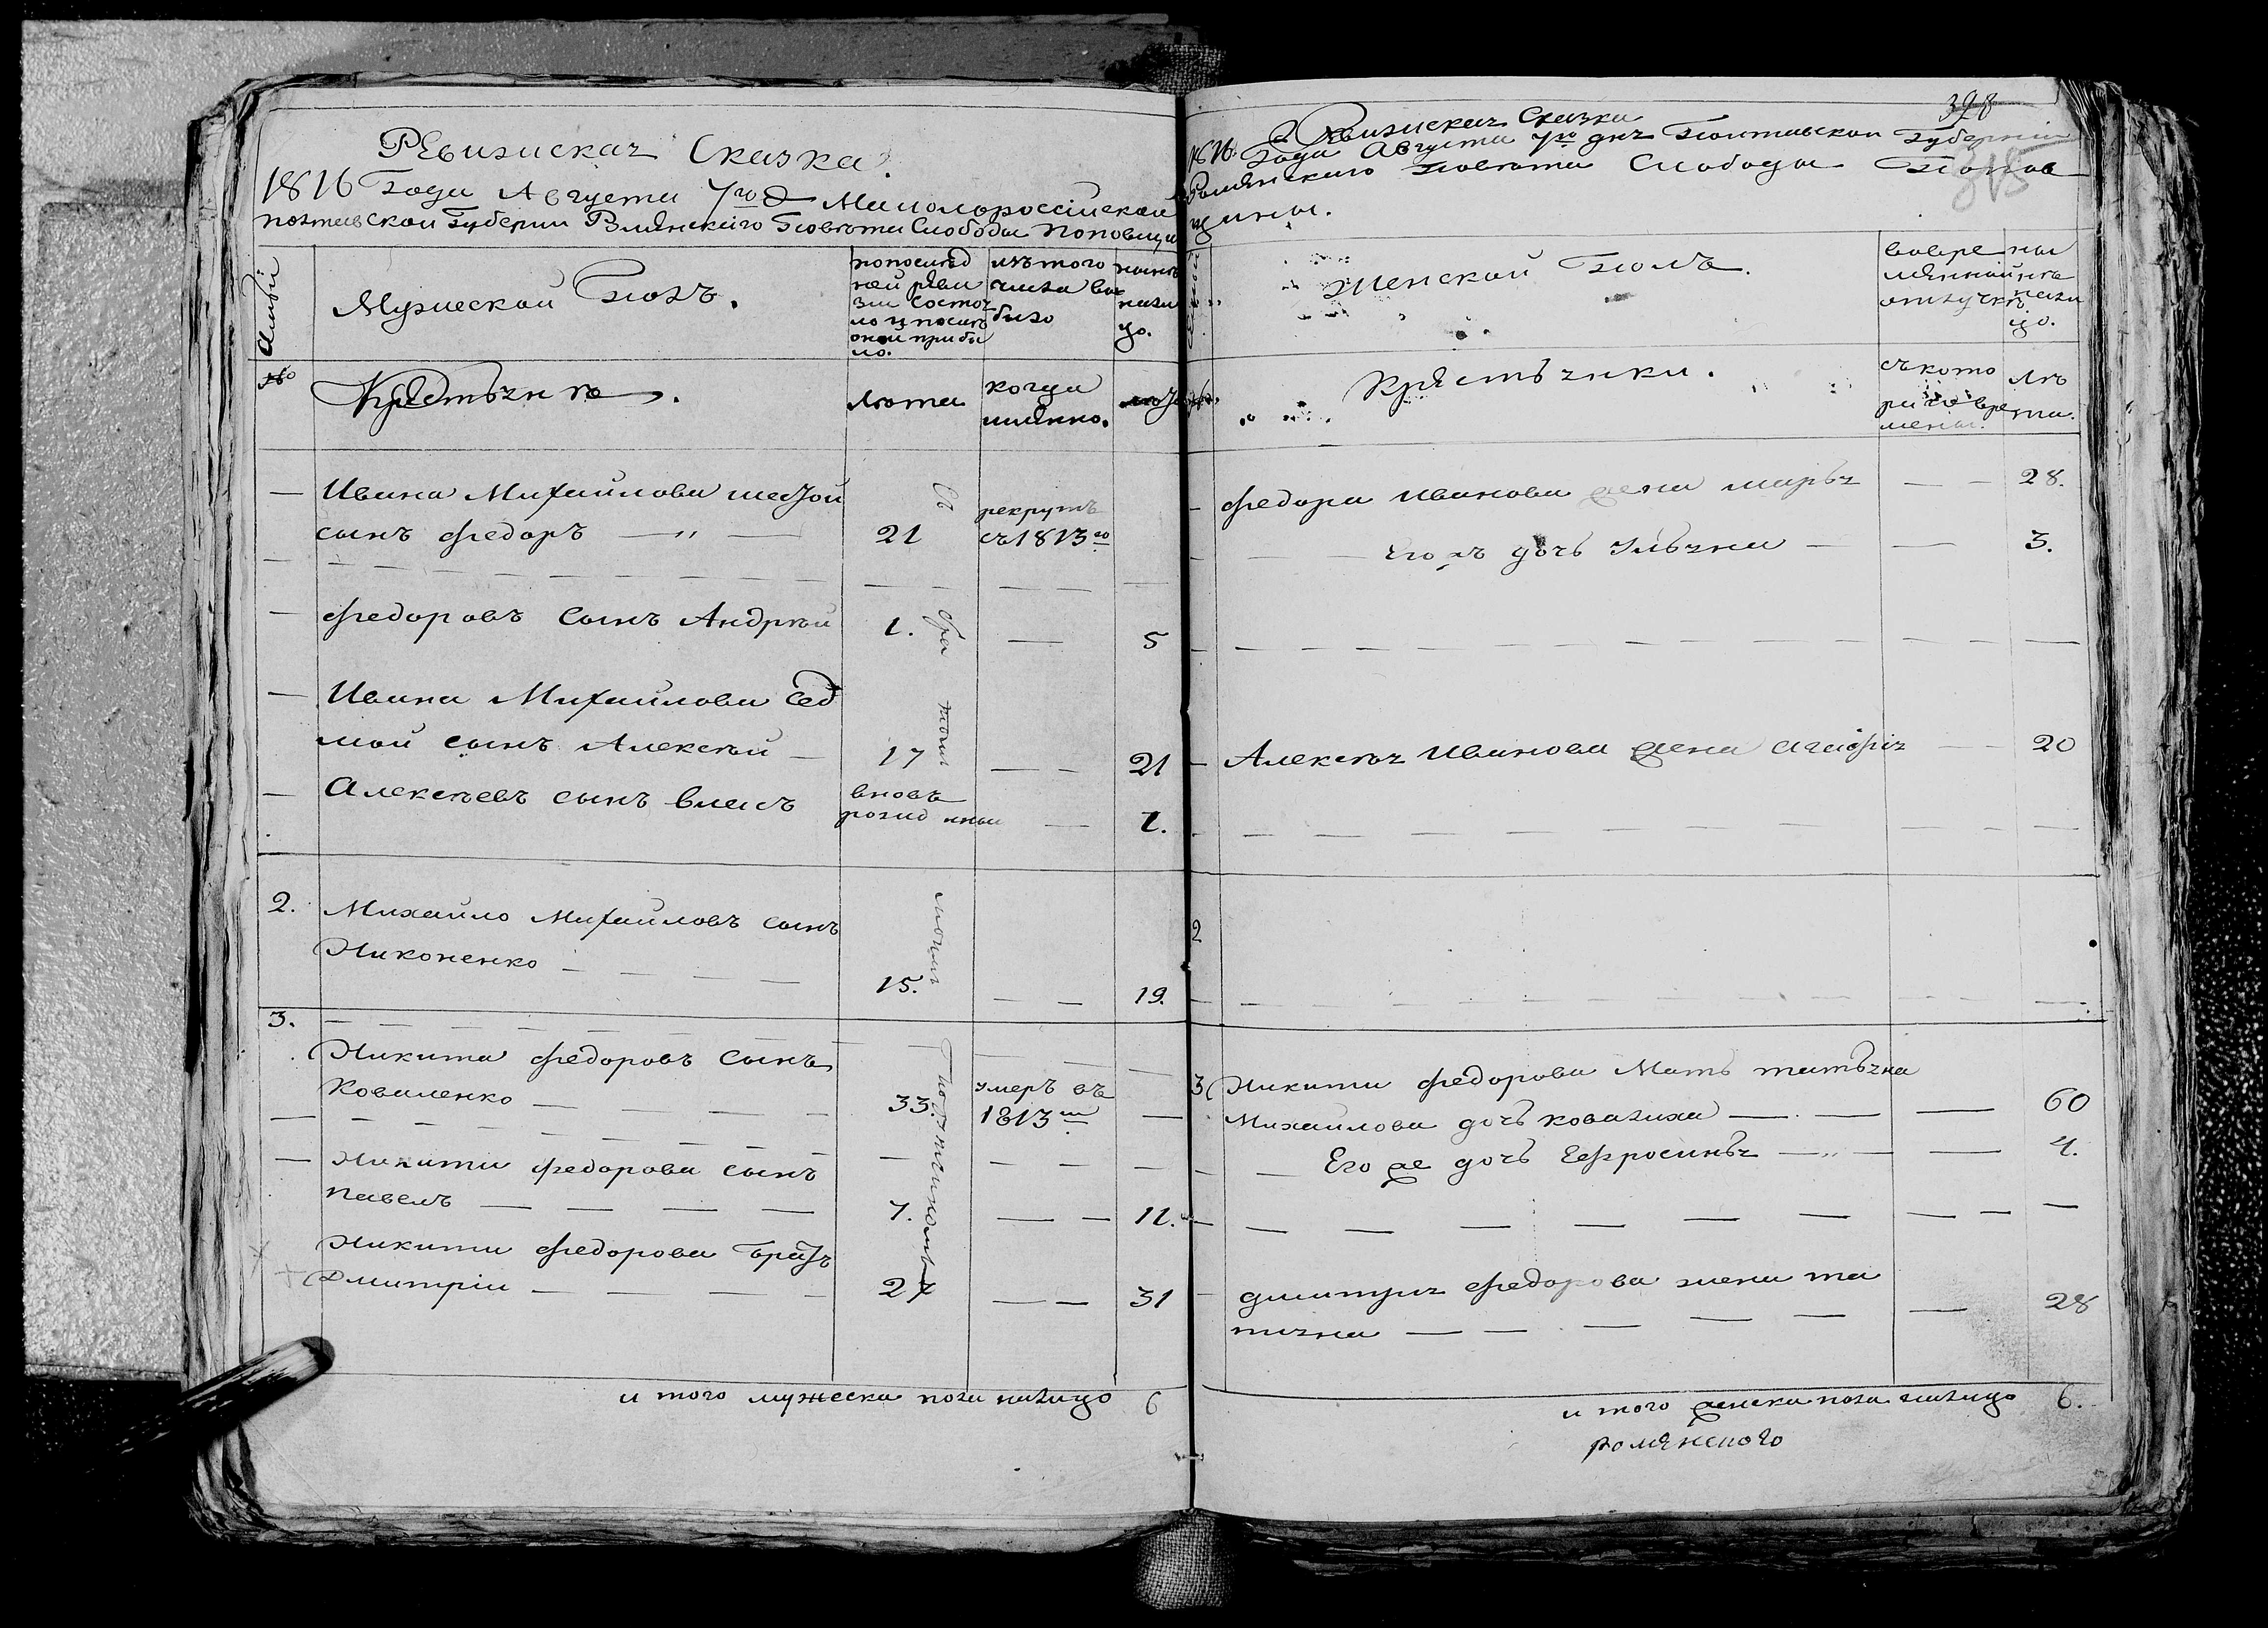 Ревизиская Сказка.
1816 Года Августа 7го д Малолороссійской
полтавской Губернии Ромѣнскаго Повѣта Слободы Поповщи
Семьи
Мужеской Полъ.
попослѣд
ней реви
зии состоя
ло и послѣ
оной прибы
ло.
изъ того
числа вы
было
нынѣ
нали
цо.
№
Крестьянѣ.
лѣта
когда
имянно.
лѣта
— Ивана Михайлова шестой
сынъ Федоръ — „ — 21 рекрутъ
съ 1813го
— Федоровъ Сынъ Андрѣй 1. — 5
— Ивана Михайлова Сед
мой сынъ Алексѣй — 17 — — 21
— Алексѣевъ сынъ власъ вновь
рожденный — 1.
2. Михайло Михайловъ сынъ
Никоненко — — — 15. — — 19.
3.
Никита Федоровъ Сынъ
Коваленко — — — 33. умеръ въ
1813м —
— Никиты Федорова сынъ
павелъ — — — — 7. — — 11.
Никиты Федорова братъ
Дмитрій — — — — 27 — — 31
и того мужеска пола налицо 6
398
315
Ревизиская Сказка
1816 Года Августа 7го дня Полтавской Губерніи
Ромѣнскаго Повѣта Слободы Попов
щины.
Женской Полъ.
вовре
мянной
отлучкѣ
ны
нѣ
нали
цо.
Крестьянки.
съ кото
раго вре
мены.
лѣ
та.
— Федора Иванова жена марья — — 28.
— Его жъ дочь Ульяна — — 3.
— Алексѣя Иванова жена агафія — — 20
2
3 Никиты Федорова Мать татьяна
Михайлова дочь ковалиха — — — 60
— Его же дочь Ефросинья — „ — — 4.
— дмитрия Федорова жена та
тияна — — — — — — 28
и того женска пола налицо 6.
ромѣнского